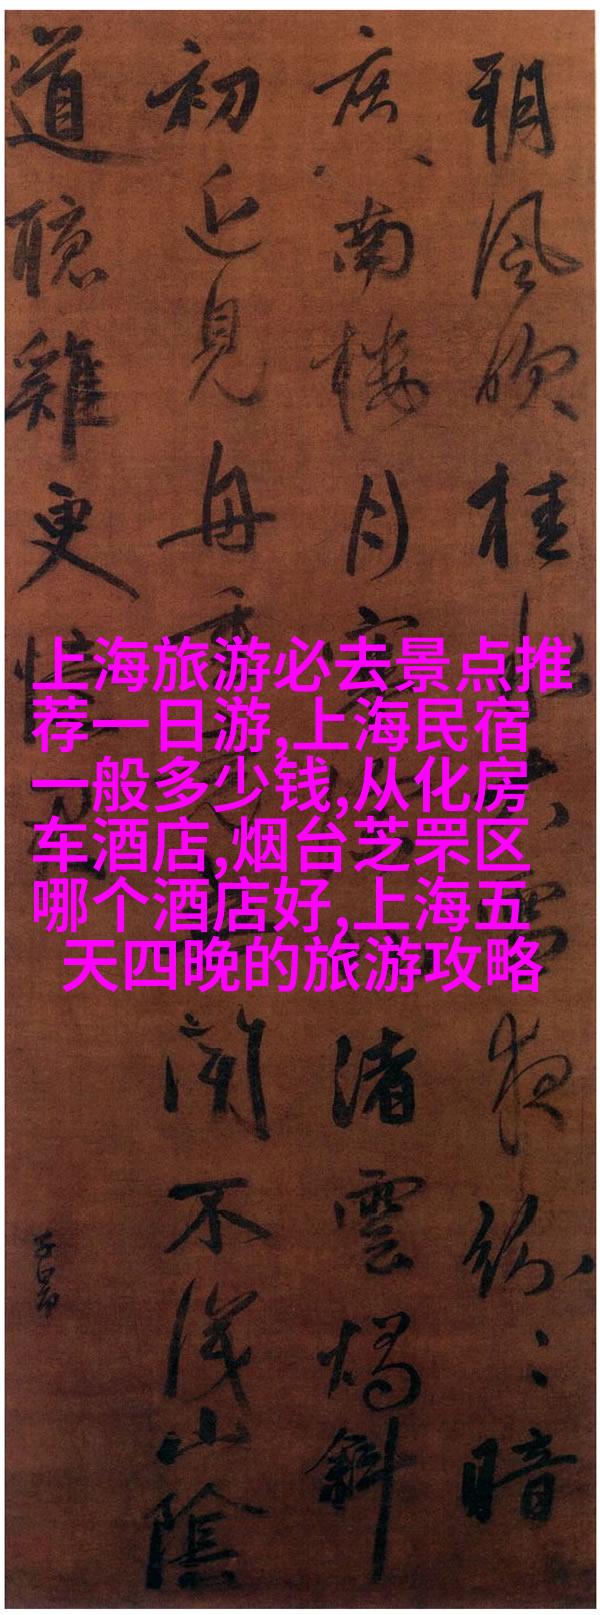 朔風吹桂水大雪夜紛〻暗
度南樓月寒渚雲燭斜
初近見舟重聞不識山陰
道聽雞更憶君
子昂
上海旅游必去景点推
荐一日游,上海民宿
一般多少钱,从化房
车酒店,烟台芝罘区
哪个酒店好,上海五
天四晚的旅游攻略